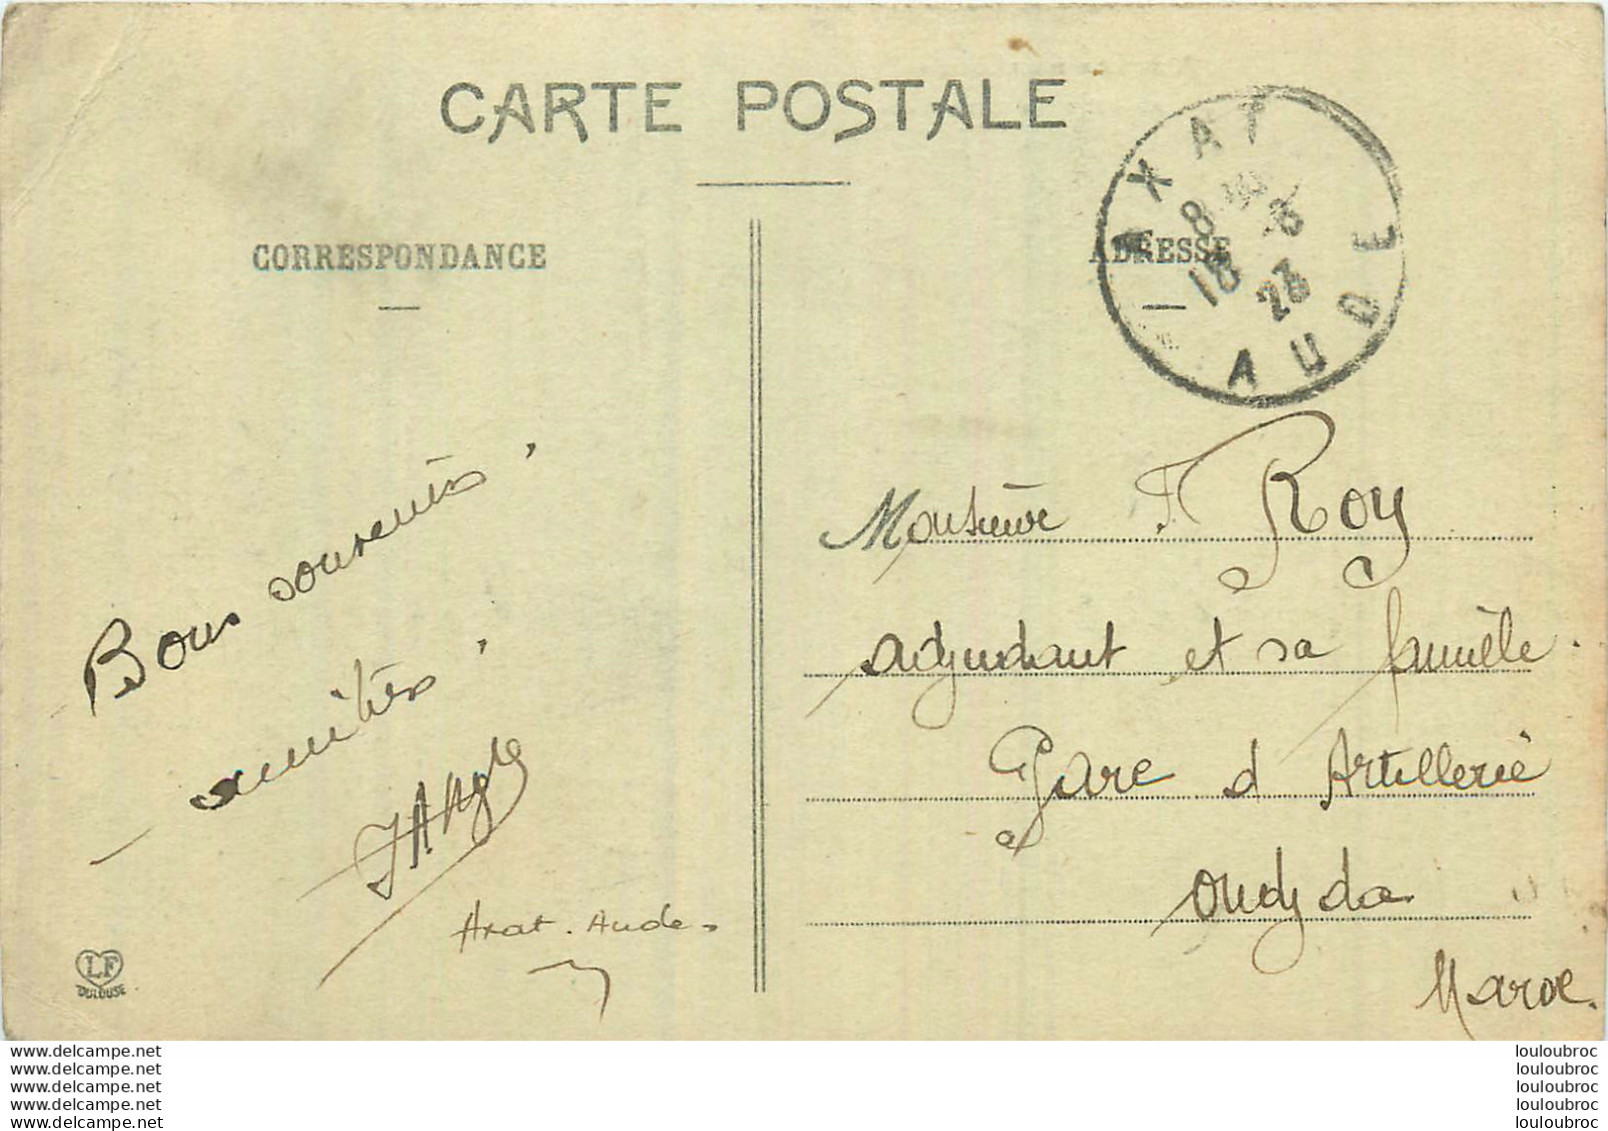 CARTE POSTALE
CORRESPONDANCE
ADRESSE
AXAT
8
18
8
23
AUDE
Bons souvenirs,
amitiés,
Axat. Aude
LF
TOULOUSE
Monsieur F Roy
adjudant et sa famille.
Gare d Artillerie
à
Oudjda
Maroc.
www.delcampe.net
www.delcampe.net
www.delcampe.net
www.delcampe.net
www.delcampe.net
louloubroc
louloubroc
louloubroc
louloubroc
louloubroc